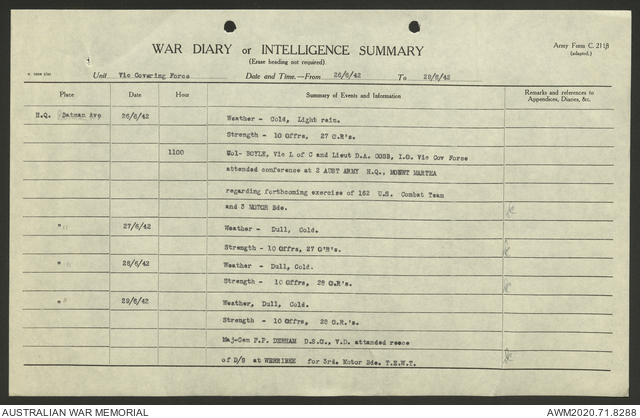 WAR DIARY or INTELLIGENCE SUMMARY
(Erase heading not required).
Army Form C. 2118
(adapted.)
Unit Vic Covering Force Date and Time.—From 26/6/42 To 29/6/42
Place Date Hour Summary of Events and Information Remarks and references to
Appendices, Diaries, &c.
H.Q. Batman Ave 26/6/42 Weather - Cold, Light rain.
Strength - 10 Offrs, 27 O.R's.
1100 Col- BOYLE, Vic L of C and Lieut D.A. COBB, I.O. Vic Cov Force
attended conference at 2 AUST ARMY H.Q., MOUNT MARTHA
regarding forthcoming exercise of 162 U.S. Combat Team
and 3 MOTOR Bde.
" 27/6/42 Weather - Dull, Cold.
Strength - 10 Offrs, 27 O'R's.
" 28/6/42 Weather - Dull, Cold.
Strength - 10 Offrs, 28 O.R's.
" 29/6/42 Weather, Dull, Cold.
Strength - 10 Offrs, 28 O.R.'s.
Maj-Gen F.P. DERHAM D.S.O., V.D. attended recce
of D/S at WERRIBEE for 3rd. Motor Bde. T.E.W.T.
AUSTRALIAN WAR MEMORIAL AWM2020.71.8288